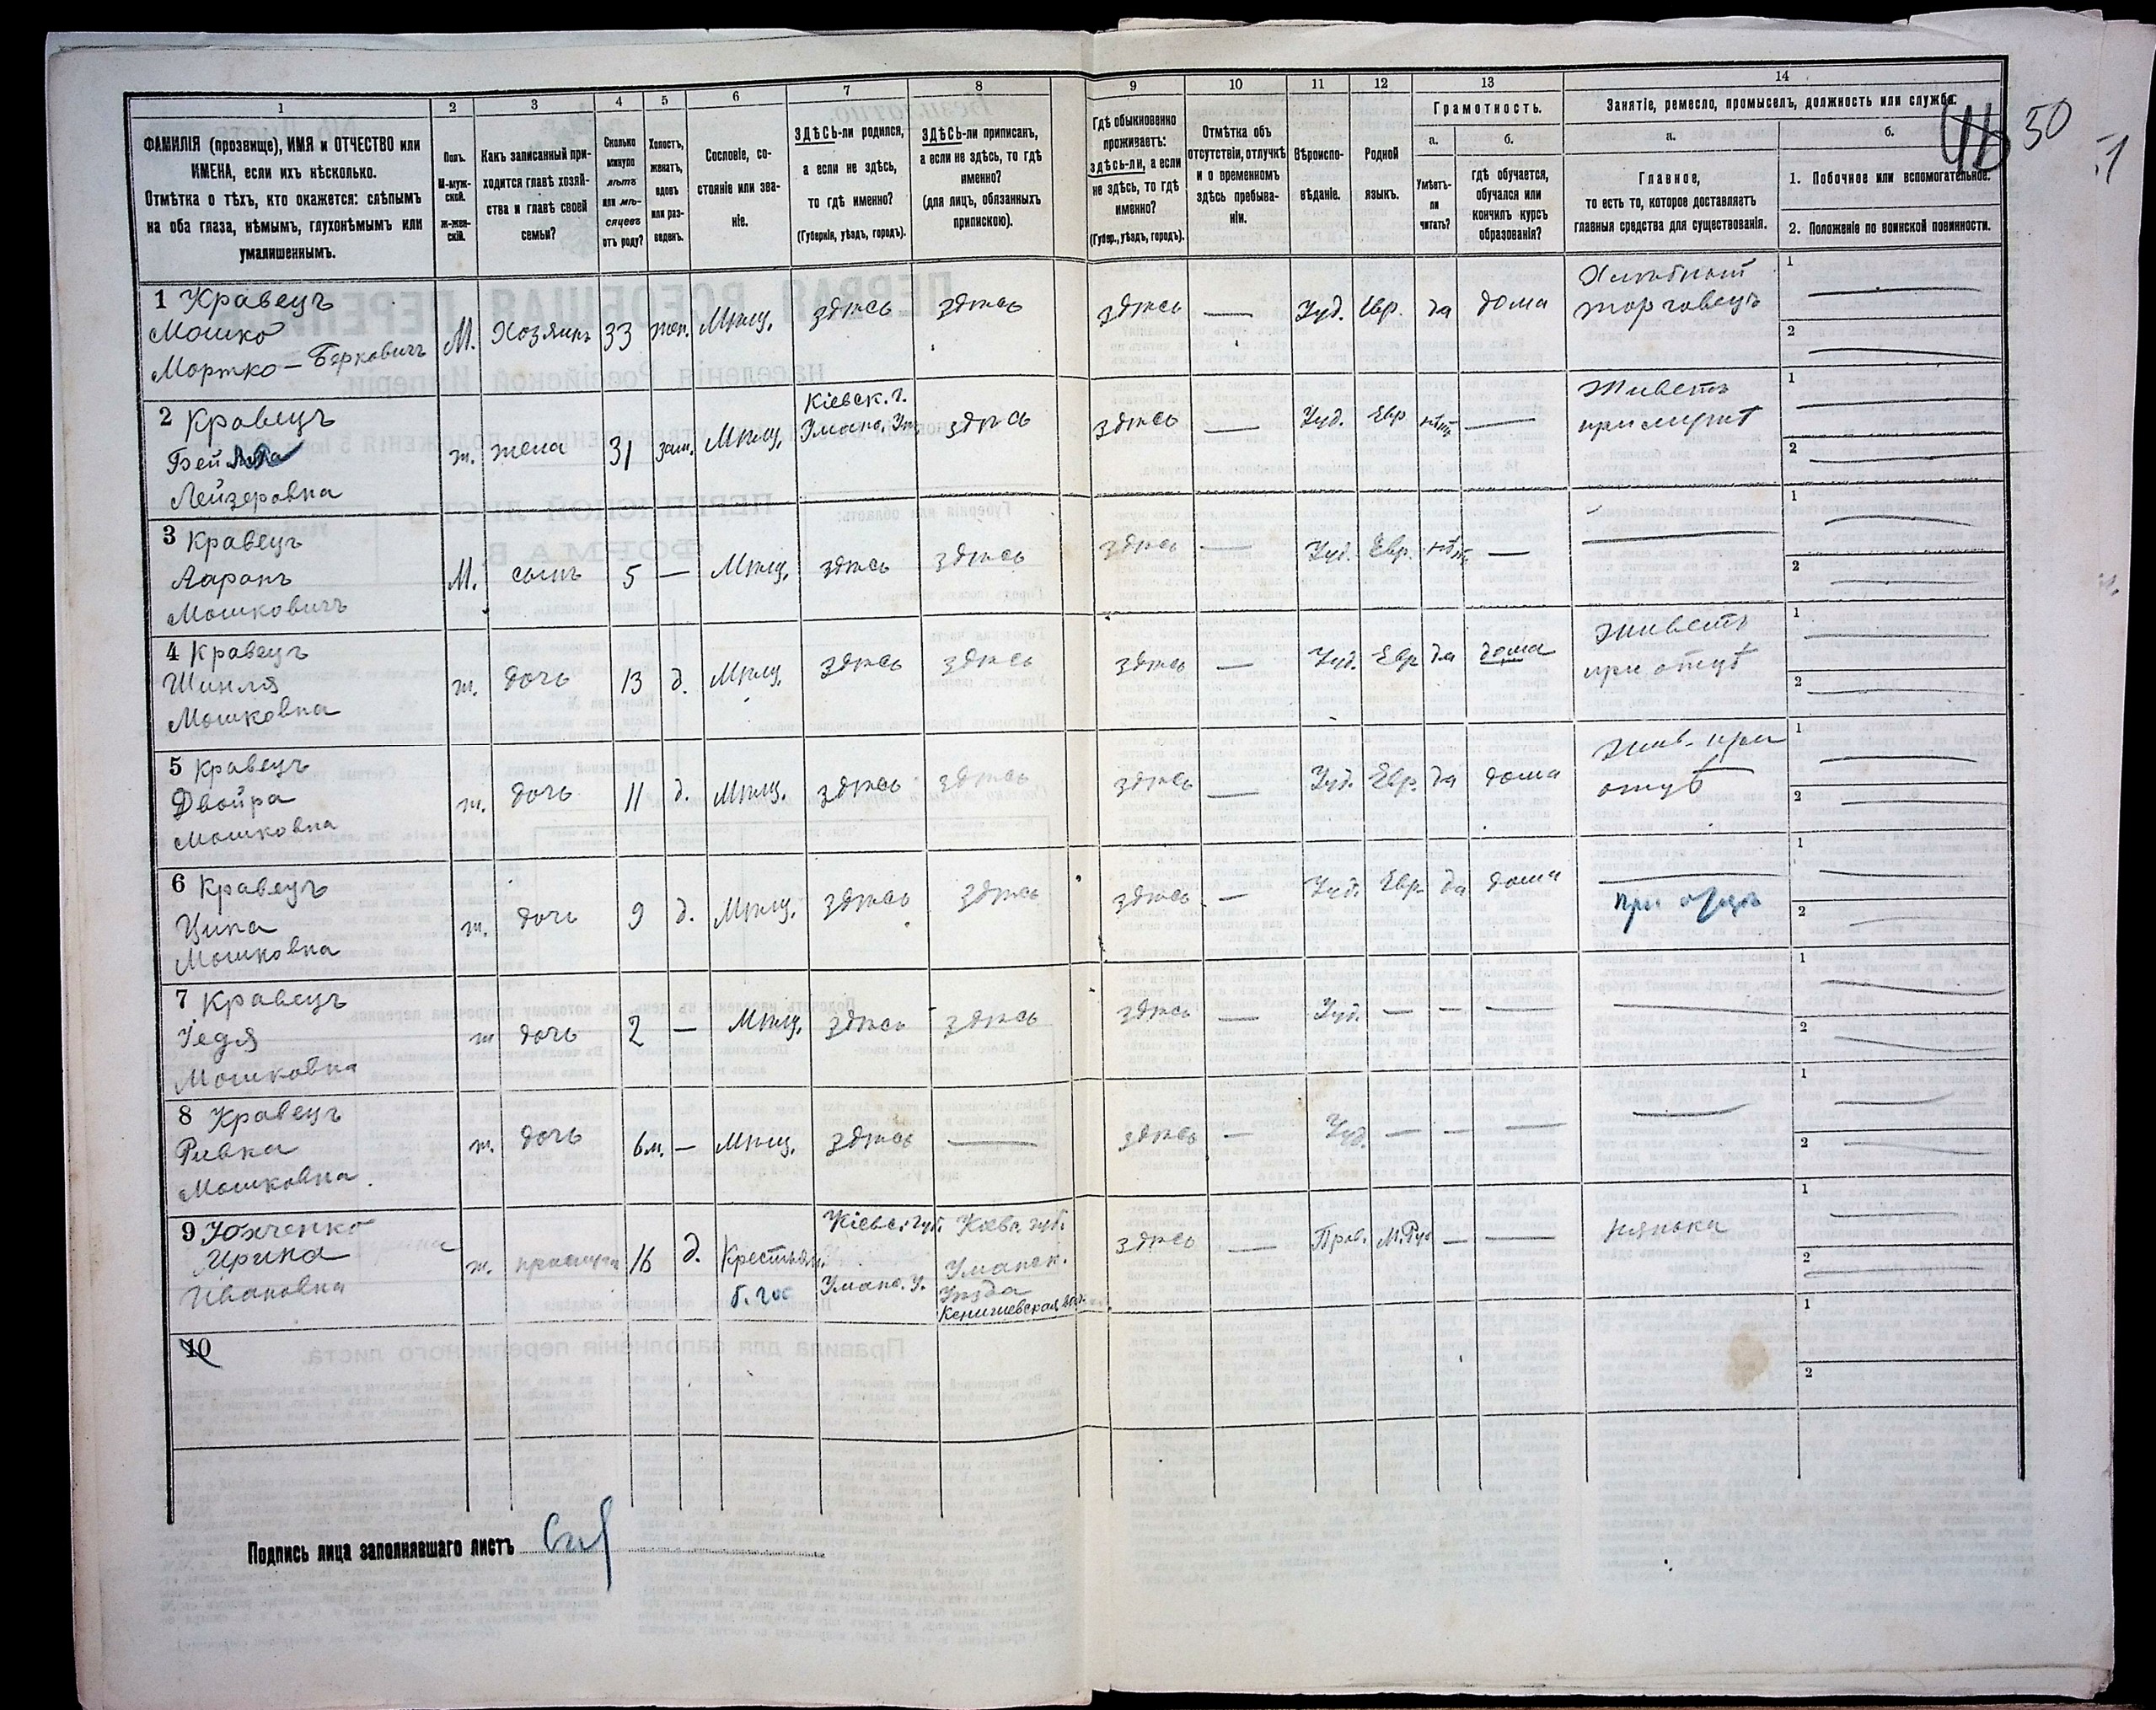 1 2 3 4 5 6 7 8 9 10 11 12 13 14
ФАМИЛІЯ (прозвище), ИМЯ и ОТЧЕСТВО или
ИМЕНА, если ихъ нѣсколько.
Отмѣтка о тѣхъ, кто окажется: слѣпымъ
на оба глаза, нѣмымъ, глухонѣмымъ или
умалишеннымъ.
Полъ.
М-муж-
ской.
Ж-жен-
скій.
Какъ записанный при-
ходится главѣ хозяй-
ства и главѣ своей
семьи?
Сколько
минуло
лѣтъ
или мѣ-
сяцевъ
отъ роду?
Холостъ,
женатъ,
вдовъ
или раз-
веденъ.
Сословіе, со-
стояніе или зва-
ніе.
ЗДѢСЬ-ли родился,
а если не здѣсь,
то гдѣ именно?
(Губернія, уѣздъ, городъ).
ЗДѢСЬ-ли приписанъ,
а если не здѣсь, то гдѣ
именно?
(для лицъ, обязанныхъ
припискою).
Гдѣ обыкновенно
проживаетъ:
здѣсь-ли, а если
не здѣсь, то гдѣ
именно?
(Губер., уѣздъ, городъ).
Отмѣтка объ
отсутствіи, отлучкѣ
и о временномъ
здѣсь пребыва-
ніи.
Вѣроиспо-
вѣданіе.
Родной
языкъ.
Грамотность.
а.
Умѣетъ-
ли
читать?
б.
гдѣ обучается,
обучался или
кончилъ курсъ
образованія?
Занятіе, ремесло, промыселъ, должность или служба.
а.
Главное,
то есть то, которое доставляетъ
главныя средства для существованія.
б.
1. Побочное или вспомогательное.
2. Положеніе по воинской повинности.
50
1
1 Кравецъ
Мошко
Мортко-Берковичъ
М. Хозяинъ 33 жен. Мѣщ. здѣсь здѣсь здѣсь — Іуд. Евр. да дома
торговецъ
1
2
2 Кравецъ
Лейзеровна
ж. жена 31 зам. Мѣщ.
Кіевск. г.
здѣсь здѣсь — Іуд. Евр нѣтъ —
Живетъ
при мужѣ
1
2
3 Кравецъ
Ааронъ
Мошковичъ
М. сынъ 5 — Мѣщ. здѣсь здѣсь здѣсь — Іуд. Евр. нѣтъ —
1
2
4 Кравецъ
Шинля
Мошковна
ж. дочь 13 д. Мѣщ. здѣсь здѣсь здѣсь — Іуд. Евр да дома
Живетъ
при отцѣ
1
2
5 Кравецъ
Двойра
Мошковна
ж. дочь 11 д. Мѣщ. здѣсь здѣсь здѣсь — Іуд. Евр. да дома
Жив. при
отцѣ
1
2
6 Кравецъ
Ципа
Мошковна
ж. дочь 9 д. Мѣщ. здѣсь здѣсь здѣсь — Іуд. Евр. да дома
при отцѣ
1
2
7 Кравецъ
Мошковна
ж дочь 2 — Мѣщ. здѣсь здѣсь здѣсь — Іуд. — — —
1
2
8 Кравецъ
Ривка
Мошковна.
ж. дочь 6 м. — Мѣщ. здѣсь — здѣсь — Іуд. — — —
1
2
9 Юхченко
Ирина
Ивановна
ж. 16 д.
Крестьян.
б. гос
Кіевс. губ.
Умано. у.
Кіевс. губ.
Уманск.
Уѣзда
здѣсь — Прав. М.Рус — —
нянька
1
2
10
1
2
Подпись лица заполнявшаго листъ